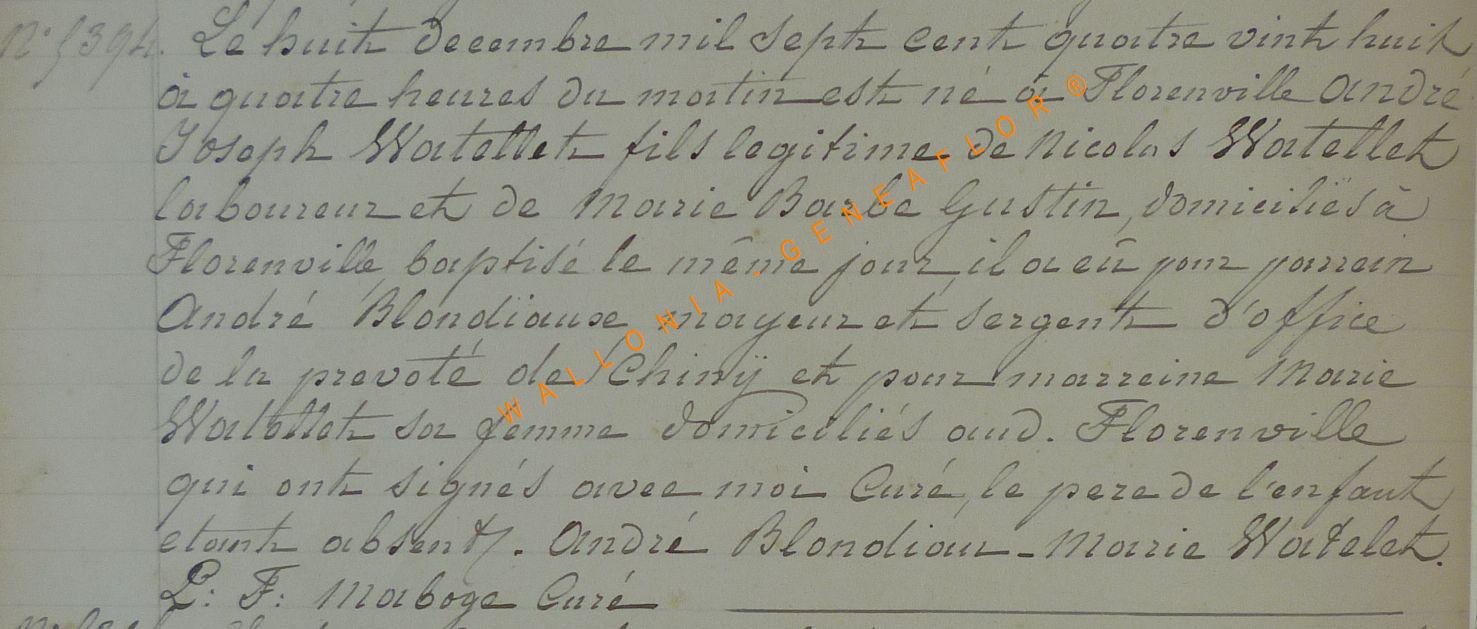 N° 5394. Le huit decembre mil sept cent quatre vint huit
à quatre heures du matin est né à Florenville André
Joseph Watellet fils legitime de Nicolas Watellet
laboureur et de Marie Barbe Gustin, domiciliés à
Florenville baptisé le même jour, il a eû pour parrein
André Blondiaux mayeur et sergent d'office
de la prevoté de Chinÿ et pour marreine Marie
Watellet sa femme domiciliés aud. Florenville
qui ont signés avec moi Curé, le pere de l'enfant
etant absent. André Blondiau - Marie Watelet.
P: F: Maboge Curé
WALLONIA - GENEAFLOR ®